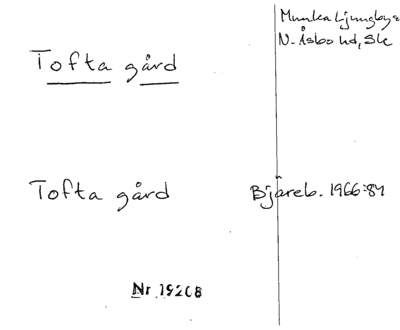 Munka Ljungby s
N. Åsbo hd, Sk
Tofta gård
Tofta gård
Bjäreb. 1966:84
Nr 19268